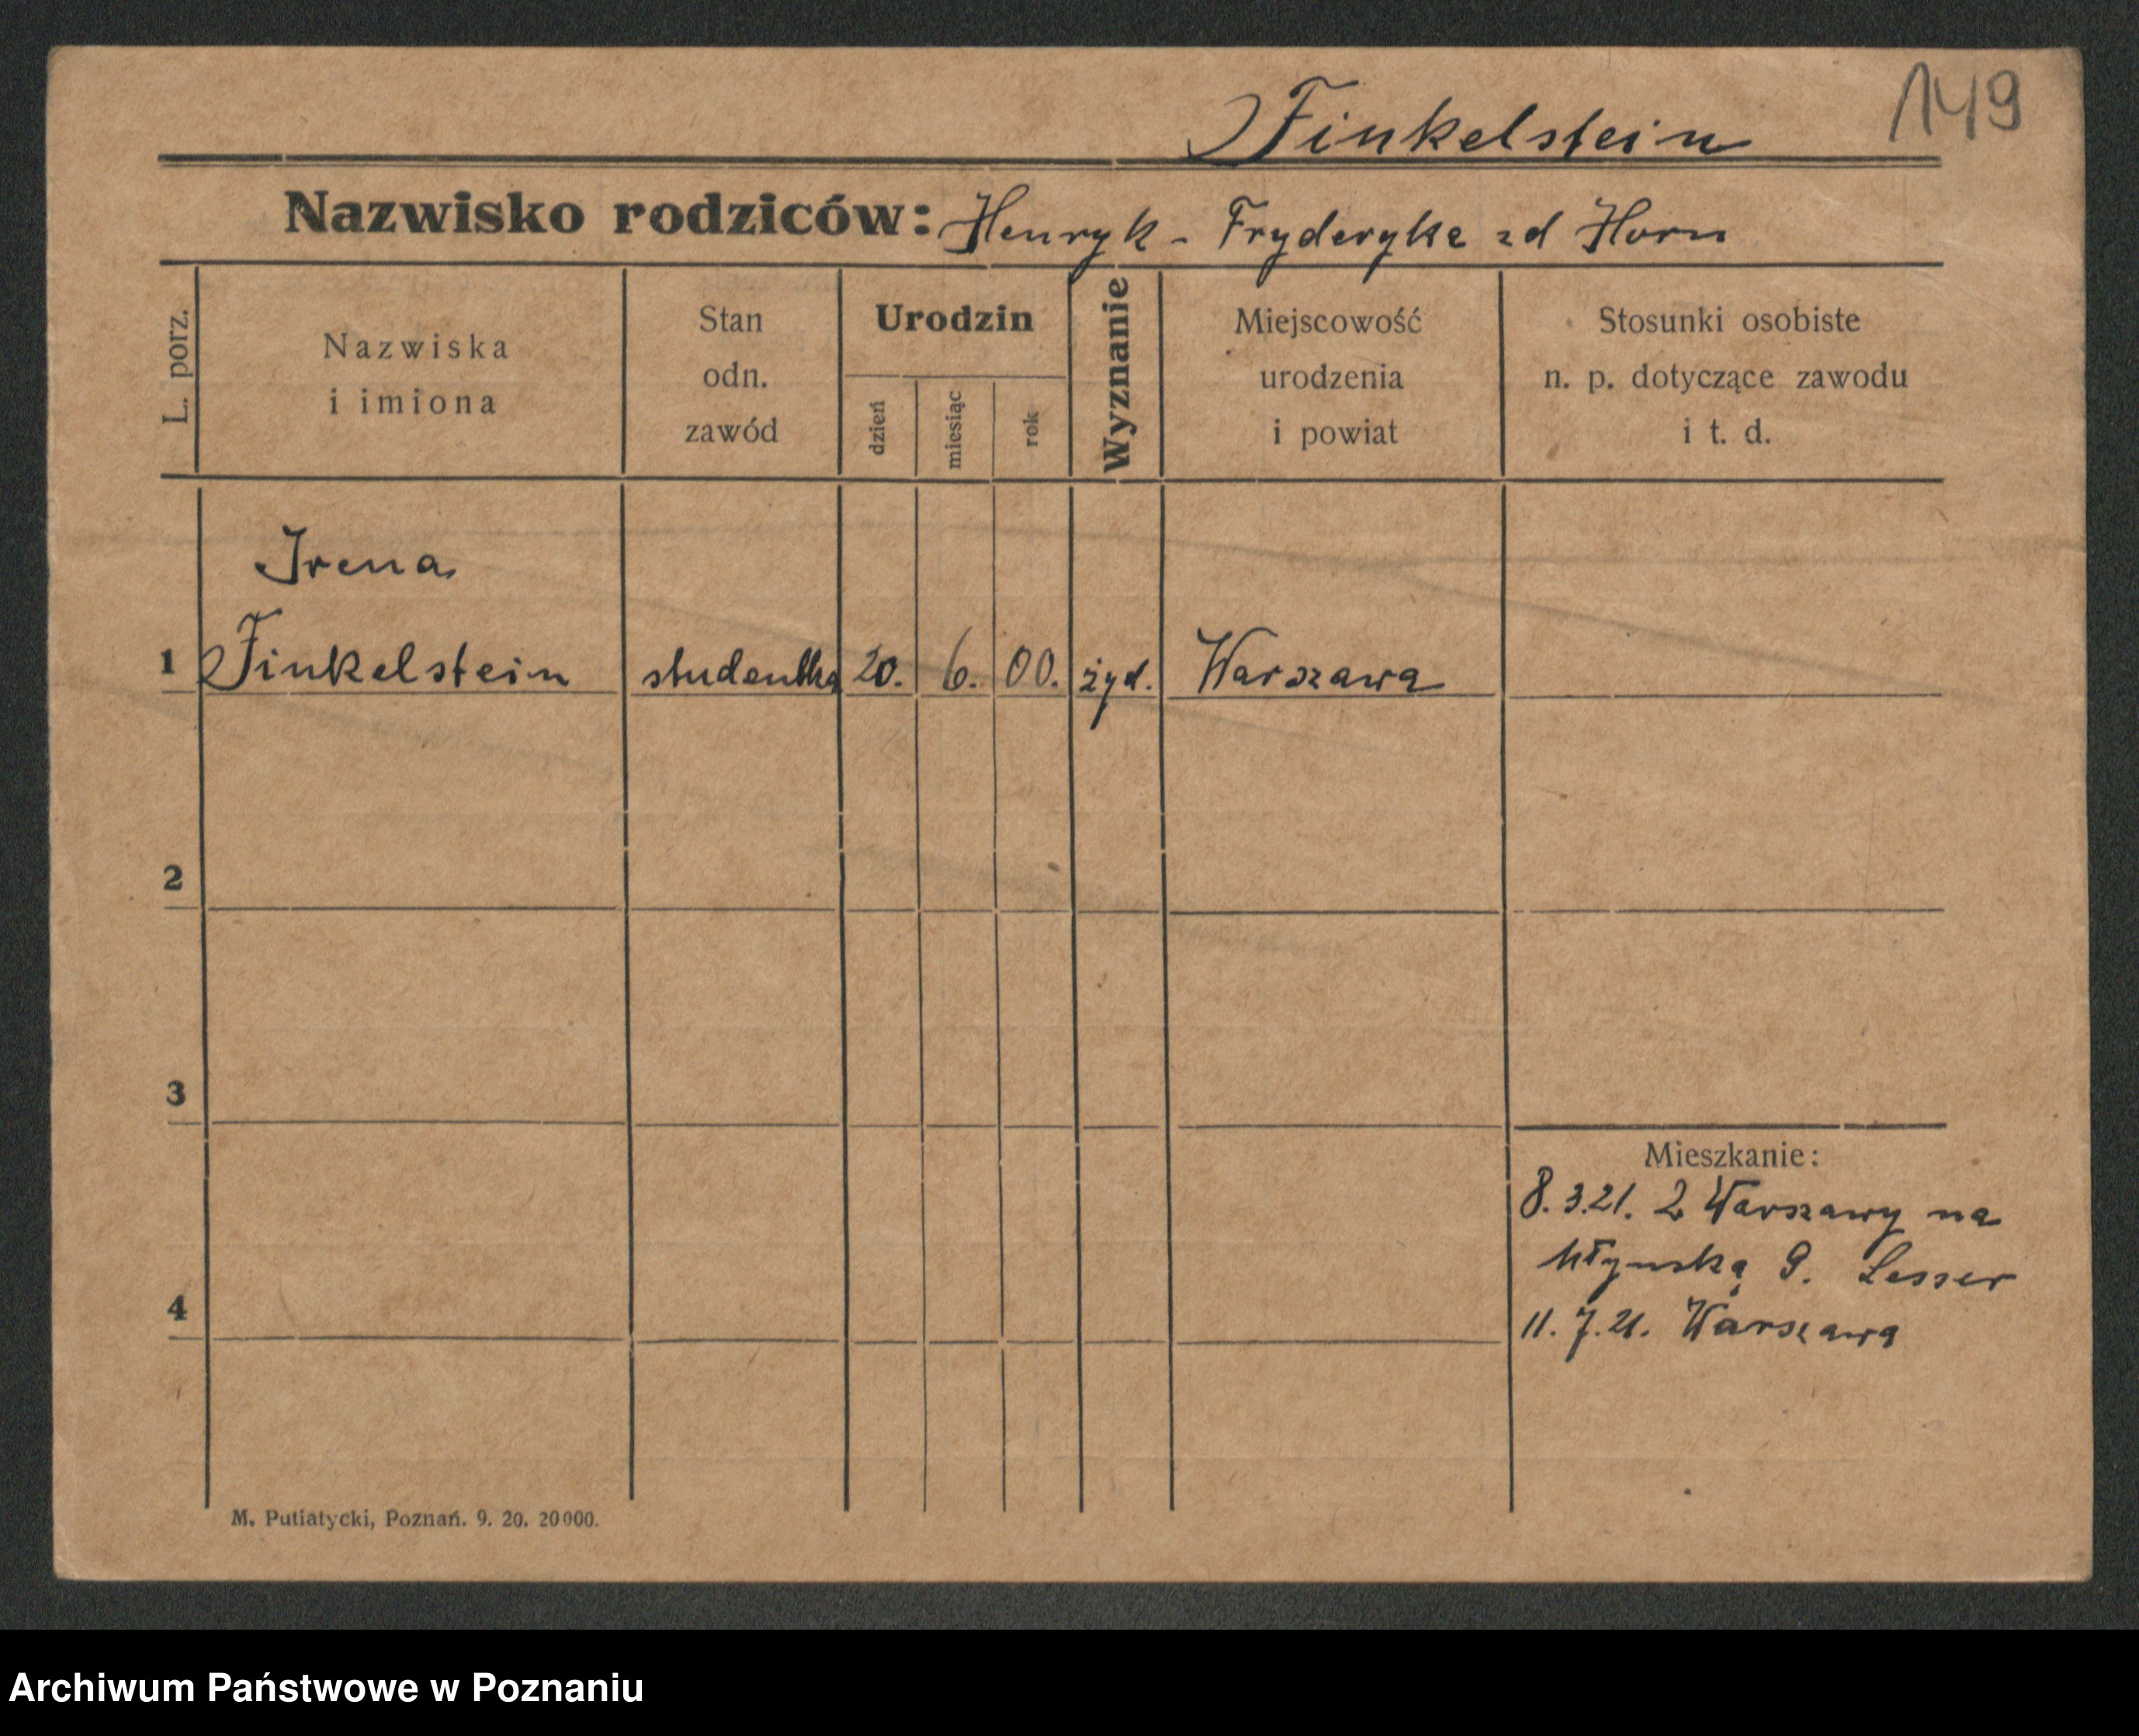 149
Finkelstein
Nazwisko rodziców: Henryk - Fryderyka zd Horn
L. porz.
Nazwiska
i imiona
Stan
odn.
zawód
Urodzin
dzień
miesiąc
rok
Wyznanie
Miejscowość
urodzenia
i powiat
Stosunki osobiste
n. p. dotyczące zawodu
i t. d.
Irena
1 Finkelstein studentka 20. 6. 00. żyd. Warszawa
2
3
4
Mieszkanie:
8.3.21. z Warszawy na
Młyńską 9. Lesser
11.7.21. Warszawa
M. Putiatycki, Poznań. 9. 20. 20000.
Archiwum Państwowe w Poznaniu